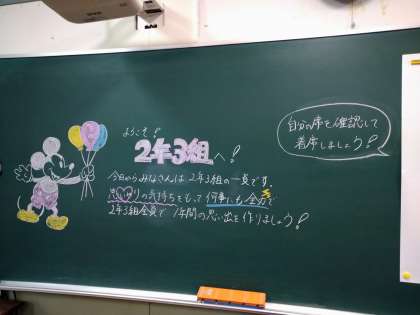 ようこそ!
2年3組へ!
今日からみなさんは2年3組の一員です。
思いやりの気持ちをもって何事にも全力で
2年3組全員で1年間の思い出を作りましょう!
自分の席を確認して
着席しましょう!